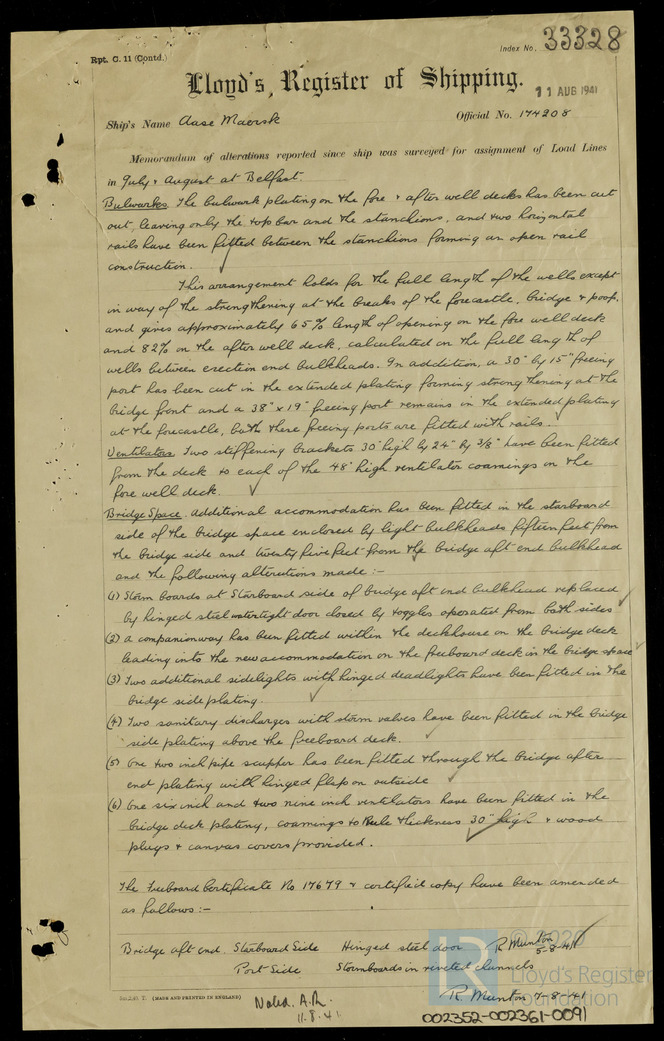 Rpt. C. 11 (Contd.)
Index No. 33328
Lloyd's Register of Shipping.
11 AUG 1941
Ship's Name Aase Maersk
Official No. 174208
Memorandum of alterations reported since ship was surveyed for assignment of Load Lines
in July & August at Belfast.
Bulwarks. The bulwark plating on the fore & after well decks has been cut
out, leaving only the top bar and the stanchions, and two horizontal
rails have been fitted between the stanchions forming an open rail
construction.
This arrangement holds for the full length of the wells except
in way of the strengthening at the breaks of the forecastle, bridge & poop,
and gives approximately 65% length of opening on the fore well deck
and 82% on the after well deck, calculated on the full length of
wells between erection end bulkheads. In addition, a 30" by 15" freeing
port has been cut in the extended plating forming strengthening at the
bridge front and a 38" x 19" freeing port remains in the extended plating
at the forecastle, both these freeing ports are fitted with rails.
Ventilators Two stiffening brackets 30" high by 24" by 3/8" have been fitted
from the deck to each of the 48" high ventilator coamings on the
fore well deck.
Bridge Space. Additional accommodation has been fitted in the starboard
side of the bridge space enclosed by light bulkheads fifteen feet from
the bridge side and twenty five feet from the bridge aft end bulkhead
and the following alterations made :-
(1) Storm boards at Starboard side of bridge aft end bulkhead replaced
by hinged steel watertight door closed by toggles operated from both sides
(2) A companionway has been fitted within the deckhouse on the bridge deck
leading into the new accommodation on the freeboard deck in the bridge space
(3) Two additional sidelights with hinged deadlights have been fitted in the
bridge side plating.
(4) Two sanitary discharges with storm valves have been fitted in the bridge
side plating above the freeboard deck.
(5) One two inch pipe scupper has been fitted through the bridge after
end plating with hinged flap on outside
(6) One six inch and two nine inch ventilators have been fitted in the
bridge deck plating, coamings to Rule thickness 30" high & wood
plugs & canvas covers provided.
The Freeboard Certificate No 17679 & certified copy have been amended
as follows :-
Bridge aft end. Starboard Side Hinged steel door R. Munton
5-8-41
Port Side Stormboards in riveted channels
R. Munton 7-8-41
(MADE AND PRINTED IN ENGLAND)
Noted. A.R.
11.8.41.
© 2020
Lloyd's Register
Foundation
002352-002361-0091